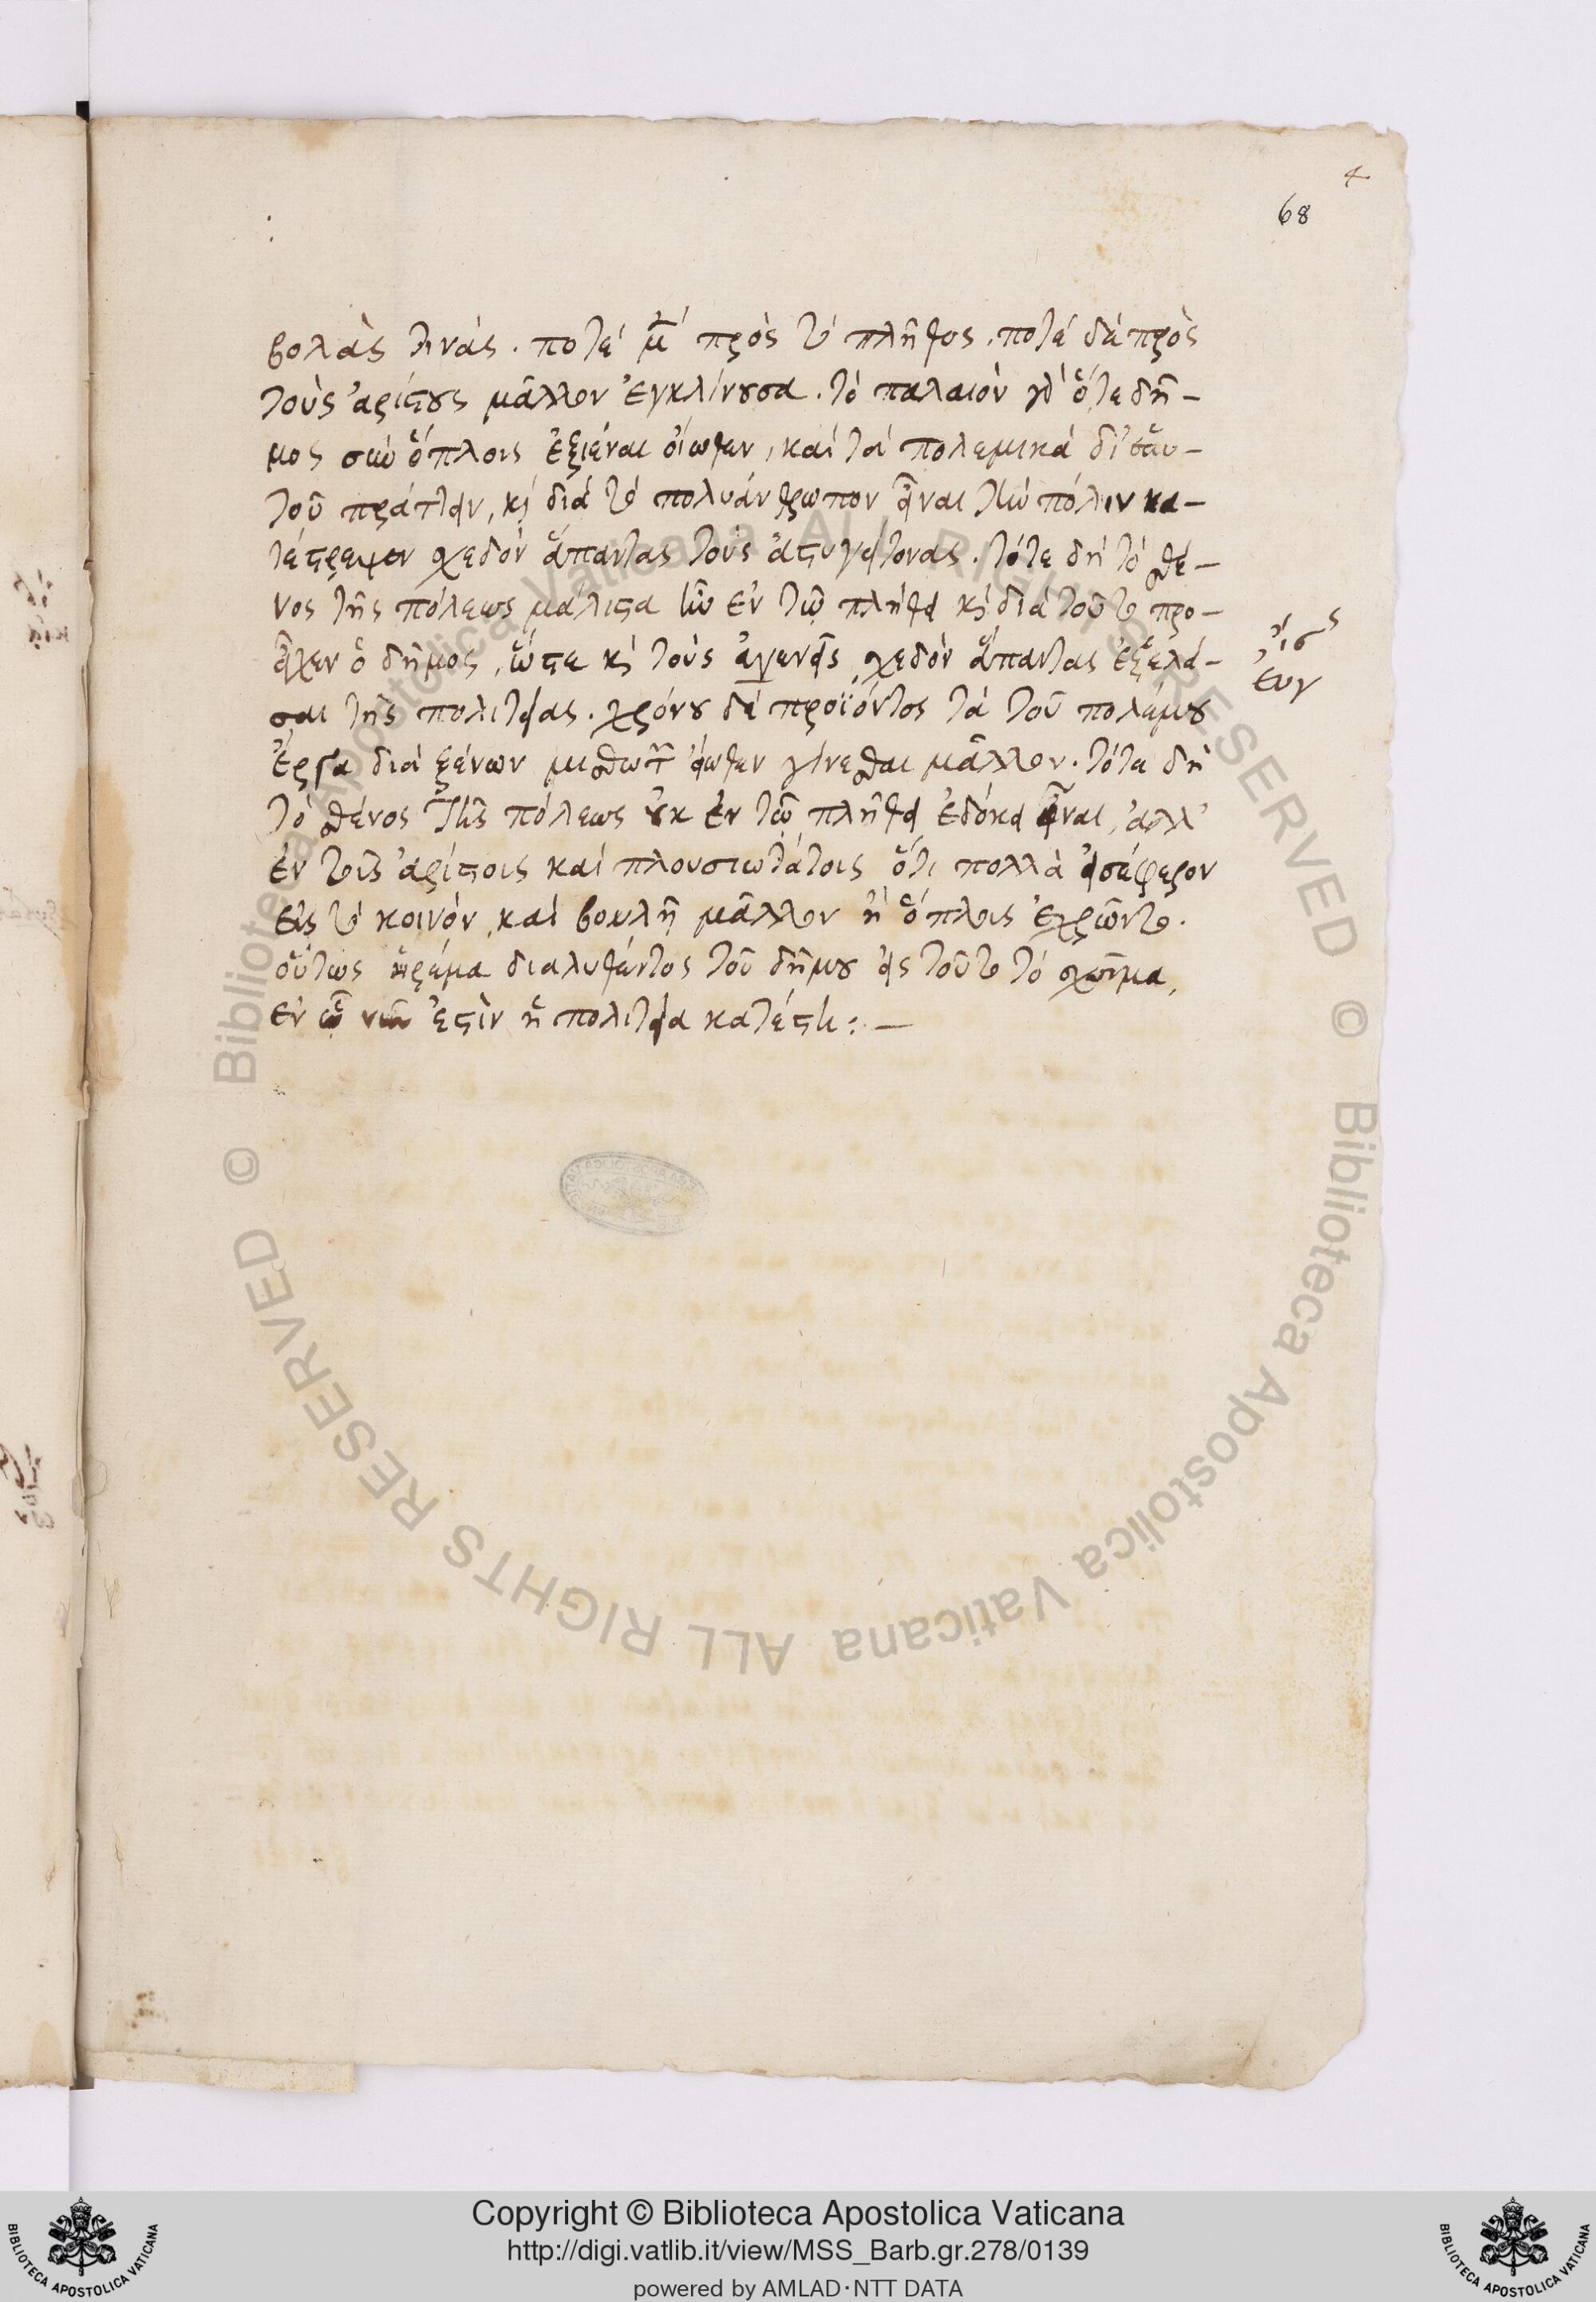 4
68
βολὰς τινάς. ποτέ μ̃ πρὸς τὸ πλῆθος, ποτέ δὲ πρὸς
τοὺς ἀρίστους μᾶλλον ἐγκλίνουσα. τὸ παλαιὸν γὰρ ὅτε δῆ-
μος σὺν ὅπλοις ἐξιέναι εἴωθεν, καὶ τὰ πολεμικὰ δι' ἑαυ-
τοῦ πράττειν, κỳ διὰ τὸ πολυάνθρωπον εἶναι τὴν πόλιν κα-
τέστρεψεν σχεδὸν ἅπαντας τοὺς ἀστυγείτονας. τότε δὴ τὸ σθέ-
νος τῆς πόλεως μάλιστα ἦν ἐν τῷ πλήθει καὶ διὰ τοῦτο προ-
εῖχεν ὁ δῆμος, ὥστε καὶ τοὺς ἀγενεῖς σχεδὸν ἅπαντας ἐξελά-
σαι τῆς πολιτείας. χρόνου δὲ προϊόντος τὰ τοῦ πολέμου
ἔργα διὰ ξένων μισθωτ εἴωθεν γίνεσθαι μᾶλλον. τότε δὴ
τὸ σθένος τῆς πόλεως οὐκ ἐν τῷ πλήθει ἐδόκει εἶναι, ἀλλ'
ἐν τοῖς ἀρίστοις καὶ πλουσιωτάτοις ὅτι πολλὰ εἰσέφερον
εἰς τὸ κοινὸν, καὶ βουλῇ μᾶλλον ἢ ὅπλοις ἐχρῶντο.
οὕτως ἠρέμα διαλυθέντος τοῦ δήμου εἰς τοῦτο τὸ σχῆμα,
ἐν ᾧ νῦν ἐστὶν ἡ πολιτεία κατέστη: —
ἴσς
ευγ
Copyright © Biblioteca Apostolica Vaticana
http://digi.vatlib.it/view/MSS_Barb.gr.278/0139
powered by AMLAD·NTT DATA
BIBLIOTECA APOSTOLICA VATICANA
BIBLIOTECA APOSTOLICA VATICANA
© Biblioteca Apostolica Vaticana ALL RIGHTS RESERVED
© Biblioteca Apostolica Vaticana ALL RIGHTS RESERVED